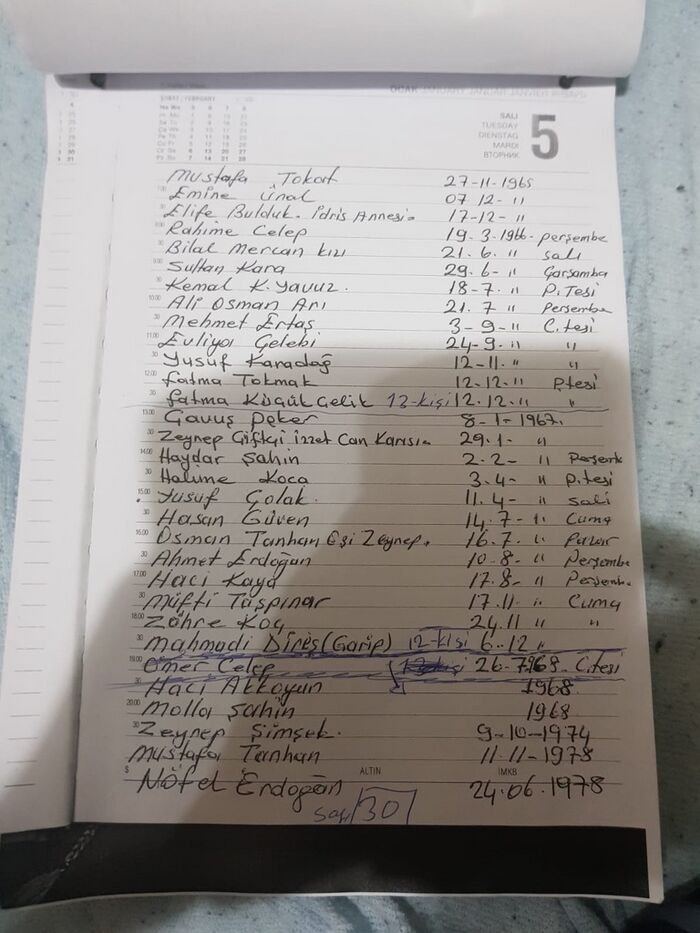 OCAK JANUARY JANUAR JANVIER
ŞUBAT / FEBRUARY
SALI
TUESDAY
DIENSTAG
MARDI
ВТОРНИК
5
Mustafa Tokat 27-11-1965
Emine Ünal 07 12- "
Elife Bulduk. İdris Annesi. 17-12- "
Rahime Celep 19. 3. 1966. perşembe
Bilal Mercan kızı 21. 6. " salı
Sultan Kara 29. 6- " Çarşamba
Kemal K. Yavuz. 18-7. " P.Tesi
Ali Osman Arı 21. 7 " Perşembe
Mehmet Ertaş 3-9-" C.tesi
Evliya Çelebi 24-9. " "
Yusuf Karadağ 12-11. " "
Fatma Tokmak 12-12. " P.tesi
Fatma Küçük Çelik 13-kişi 12.12. " "
Çavuş Peker 8-1-1967.
Zeynep Çiftçi İzzet Can Karısı. 29.1- "
Haydar Şahin 2.2- " Perşemb
Halime Koca 3.4- " P.tesi
Yusuf Çolak. 11.4- " Salı
Hasan Güven 14.7- " Cuma
Osman Tanhan Eşi Zeynep. 16.7. " Pazar
Ahmet Erdoğan 10-8- " Perşembe
Hacı Kaya 17.8- " Perşembe
Müfti Taşpınar 17.11. " Cuma
Zöhre Koç 24.11 " "
Mahmadi Direş (Garip) 12-kişi 6-12 "
Ömer Celep 26-7-1968- C.tesi
Hacı Akkoyun 1968
Molla Şahin 1968
Zeynep Şimşek. 9-10-1974
Mustafa Tanhan 11-11-1978
$ € ALTIN İMKB
Nöfel Erdoğan 24.06.1978
30